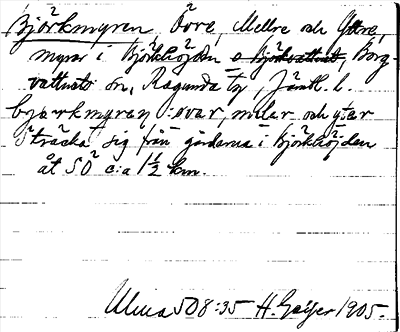 Björkmyren, Övre, Mellre och Yttre,
myrar i Björkhöjden o Björkvattnet, Borg-
vattnets sn, Ragunda tg, Jämtl. l.
bjarkmyren övar, melar och ytar
Sträcka sig från gårdarna i Björkhöjden
åt SO c:a 1½ km.
Ulma 508:35 H. Geijer 1905.